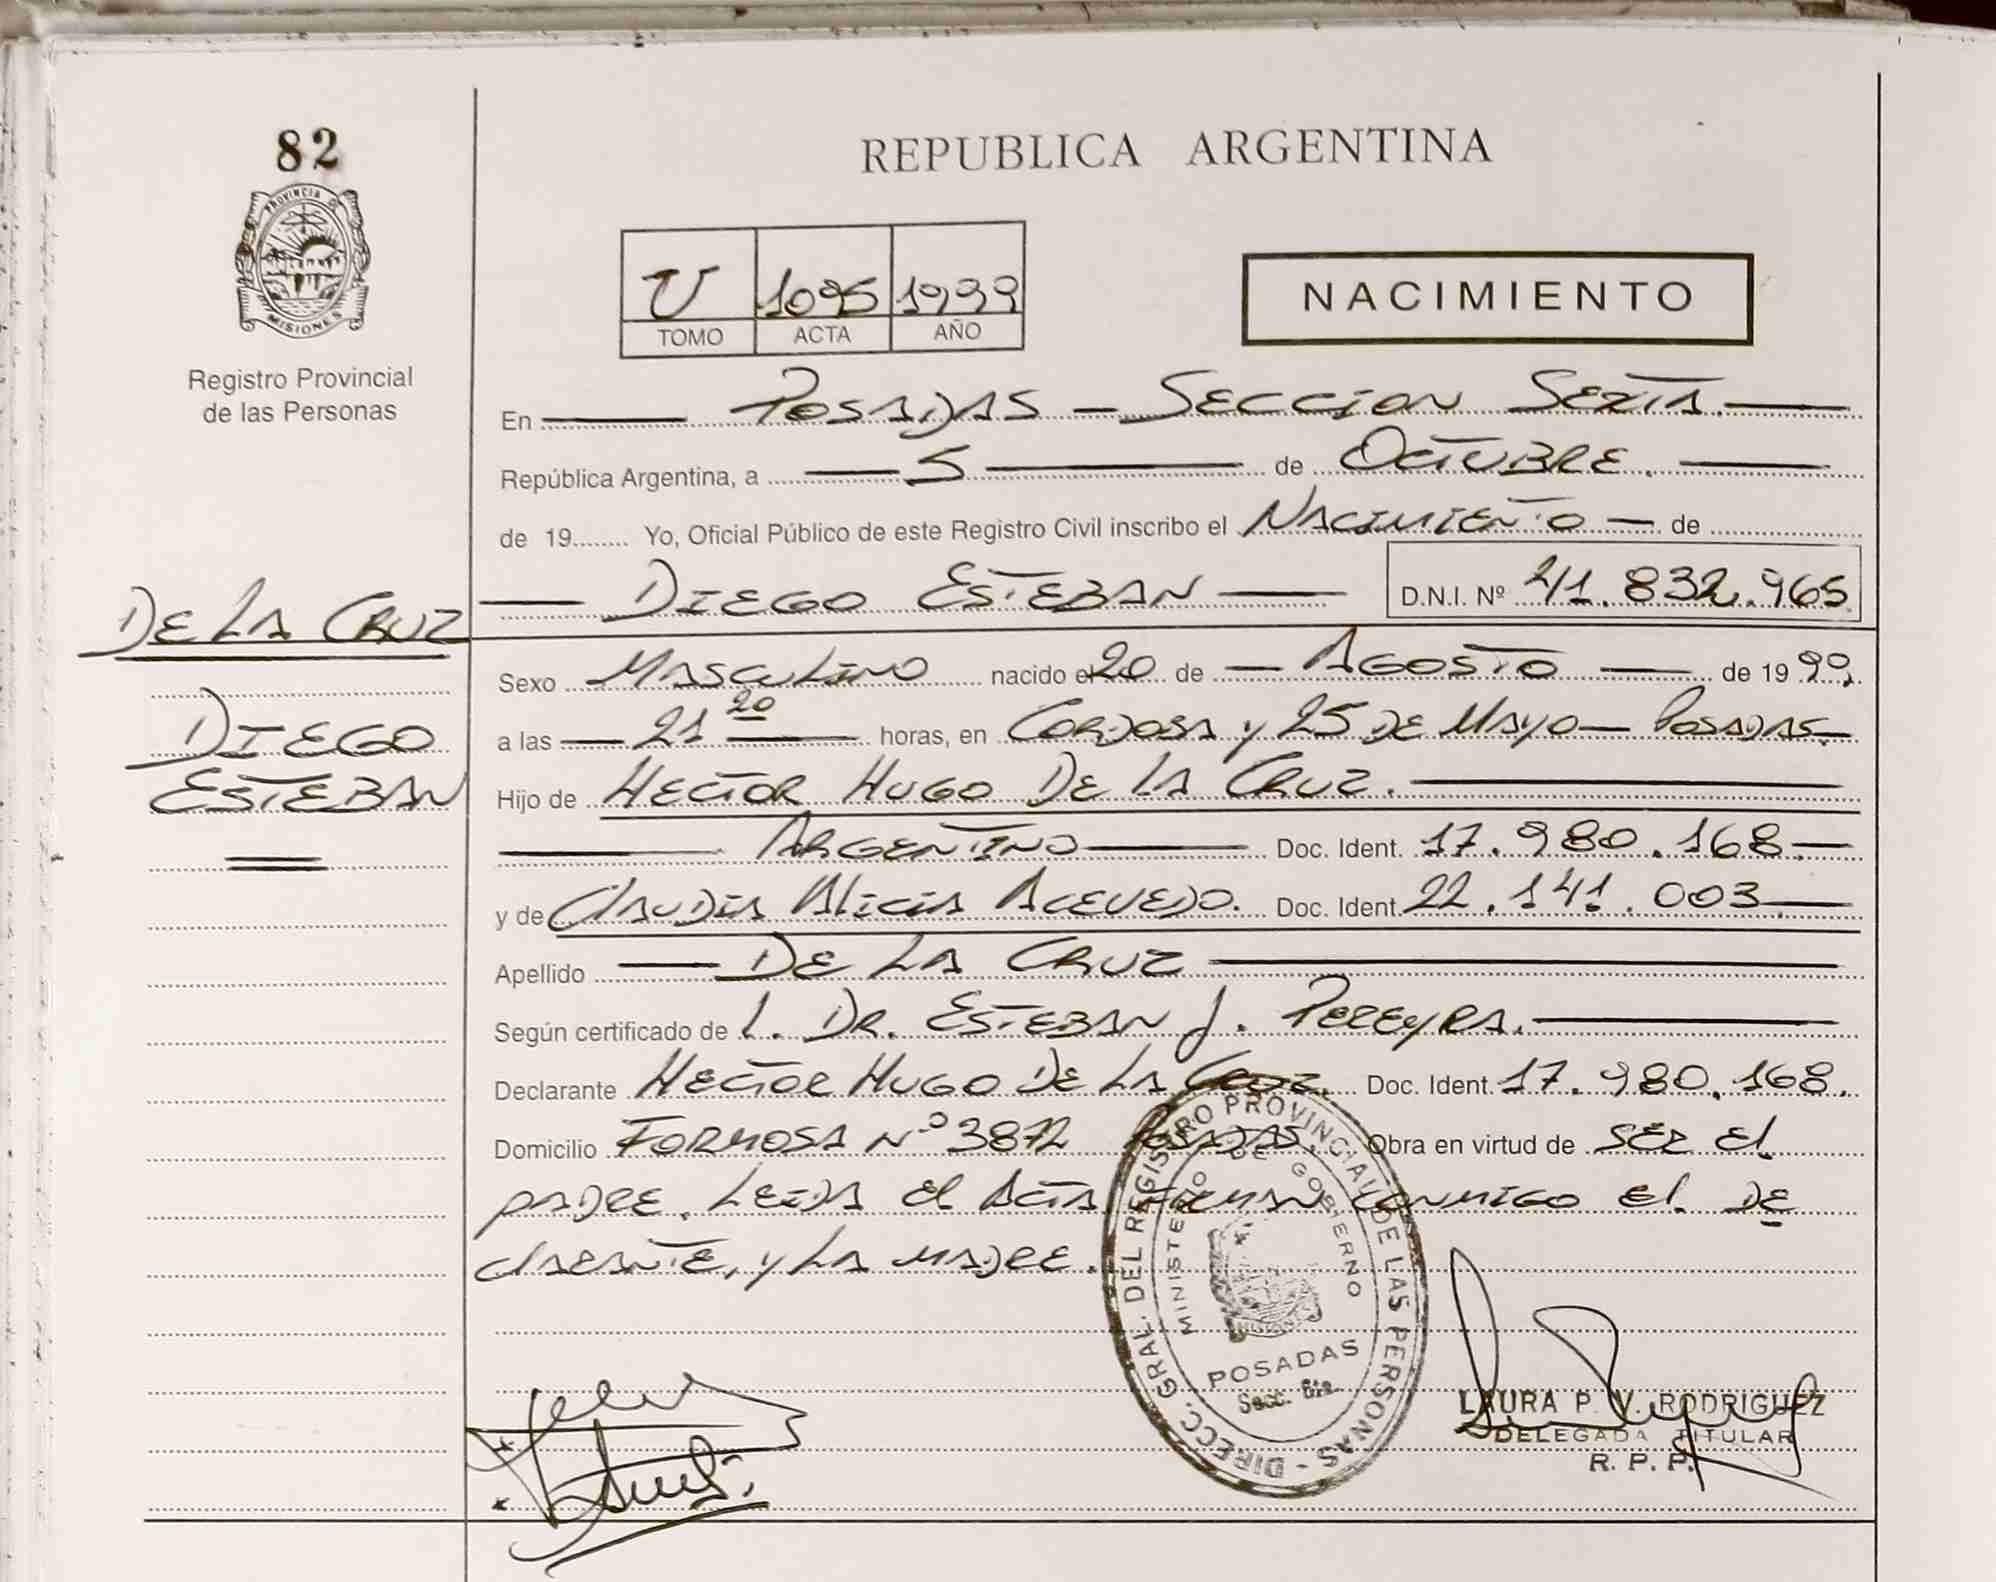 82
PROVINCIA DE
MISIONES
Registro Provincial
de las Personas
REPUBLICA ARGENTINA
U 1095 1999
TOMO ACTA AÑO
NACIMIENTO
En POSADAS - SECCION SEXTA.
República Argentina, a 5 de OCTUBRE.
de 19........ Yo, Oficial Público de este Registro Civil inscribo el NACIMIENTO de
DIEGO ESTEBAN D.N.I. Nº 41.832.965
DE LA CRUZ
DIEGO
ESTEBAN
Sexo MASCULINO nacido el 20 de AGOSTO de 19 99,
a las 21 20 horas, en CORDOBA y 25 DE MAYO - POSADAS.
Hijo de HECTOR HUGO DE LA CRUZ.
ARGENTINO Doc. Ident. 17.980.168.
y de CLAUDIA ALICIA ACEVEDO. Doc. Ident. 22.141.003
Apellido DE LA CRUZ
Según certificado de L. DR. ESTEBAN J. PEREYRA.
Declarante HECTOR HUGO DE LA CRUZ. Doc. Ident. 17.980.168.
Domicilio FORMOSA Nº 3872 POSADAS. Obra en virtud de SER EL
PADRE. LEIDA EL ACTA FIRMAN CONMIGO EL DE
CLARANTE, Y LA MADRE.
DIRECC. GRAL. DEL REGISTRO PROVINCIAL DE LAS PERSONAS -
MINISTERIO DE GOBIERNO
POSADAS
Secc. 6ta.
LAURA P. V. RODRIGUEZ
DELEGADA TITULAR
R. P. P.